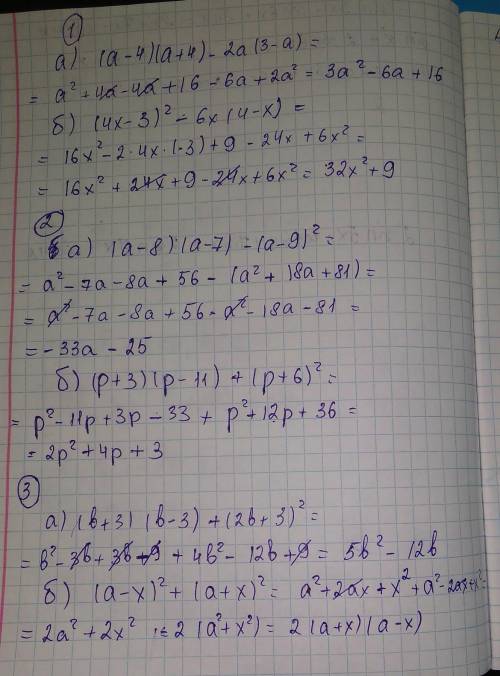 1
а) (a-4)(a+4) - 2a(3-a) =
= a² + 4a - 4a + 16 - 6a + 2a² = 3a² - 6a + 16
б) (4x-3)² - 6x(4-x) =
= 16x² - 2·4x·(-3) + 9 - 24x + 6x² =
= 16x² + 24x + 9 - 24x + 6x² = 32x² + 9
2
а) (a-8)(a-7) - (a-9)² =
= a² - 7a - 8a + 56 - (a² + 18a + 81) =
= a² - 7a - 8a + 56 - a² - 18a - 81 =
= -33a - 25
б) (p+3)(p-11) + (p+6)² =
= p² - 11p + 3p - 33 + p² + 12p + 36 =
= 2p² + 4p + 3
3
а) (b+3)(b-3) + (2b+3)² =
= b² - 3b + 3b + 9 + 4b² - 12b + 9 = 5b² - 12b
б) (a-x)² + (a+x)² = a² + 2ax + x² + a² - 2ax + x² =
= 2a² + 2x² = 2(a² + x²) = 2(a+x)(a-x)